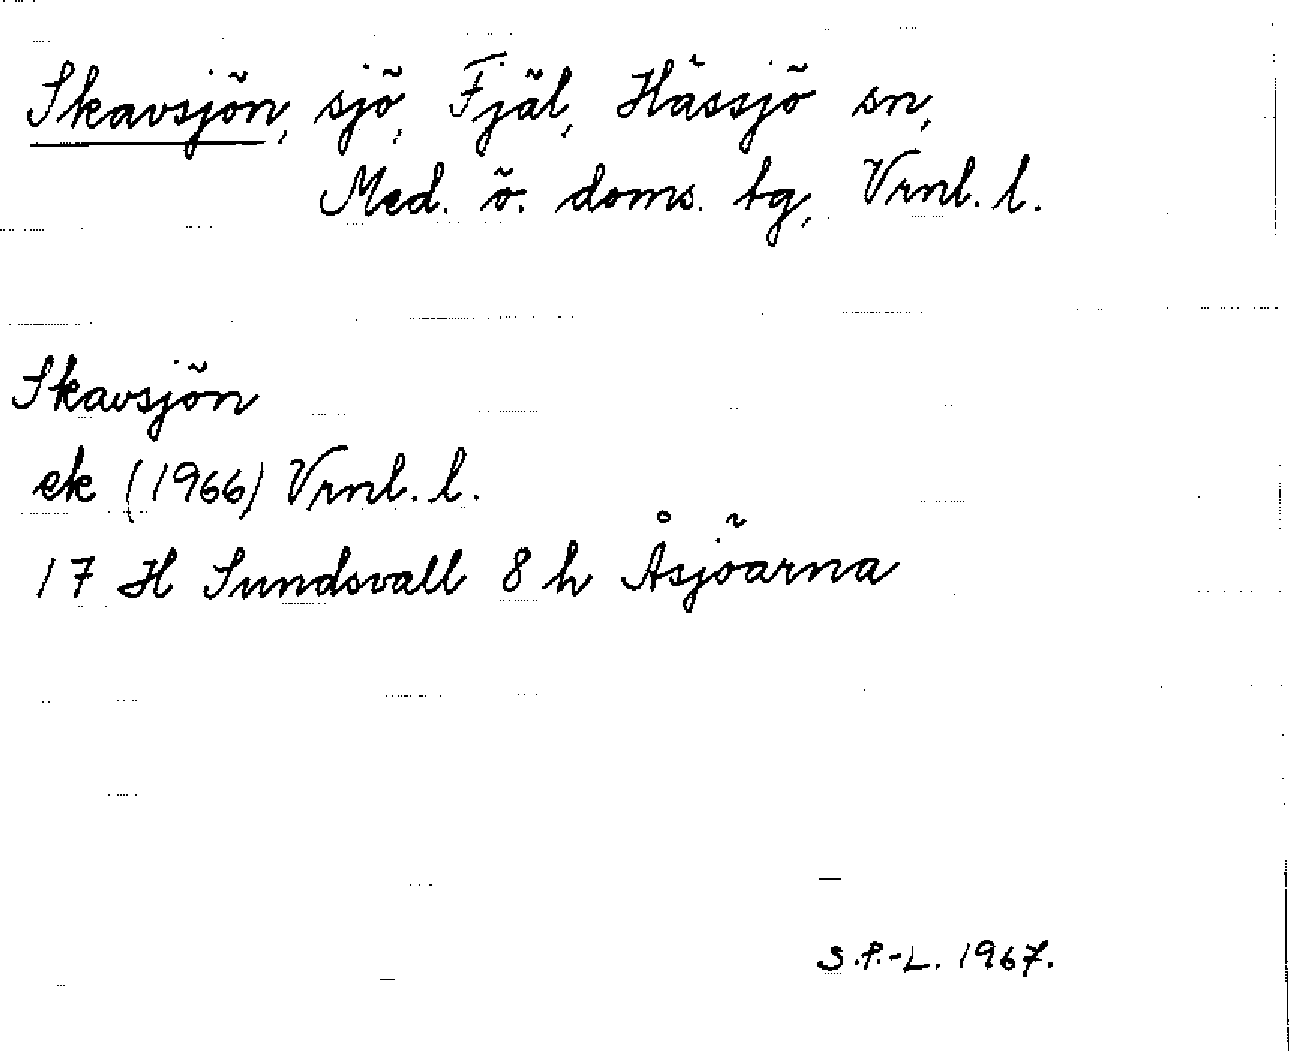 Skavsjön, sjö, Fjäl, Hässjö sn,
Med. ö. doms. tg, Vrnl. l.
Skavsjön
ek (1966) Vrnl. l.
17 H Sundsvall 8 h Åsjöarna
S.P.-L. 1967.